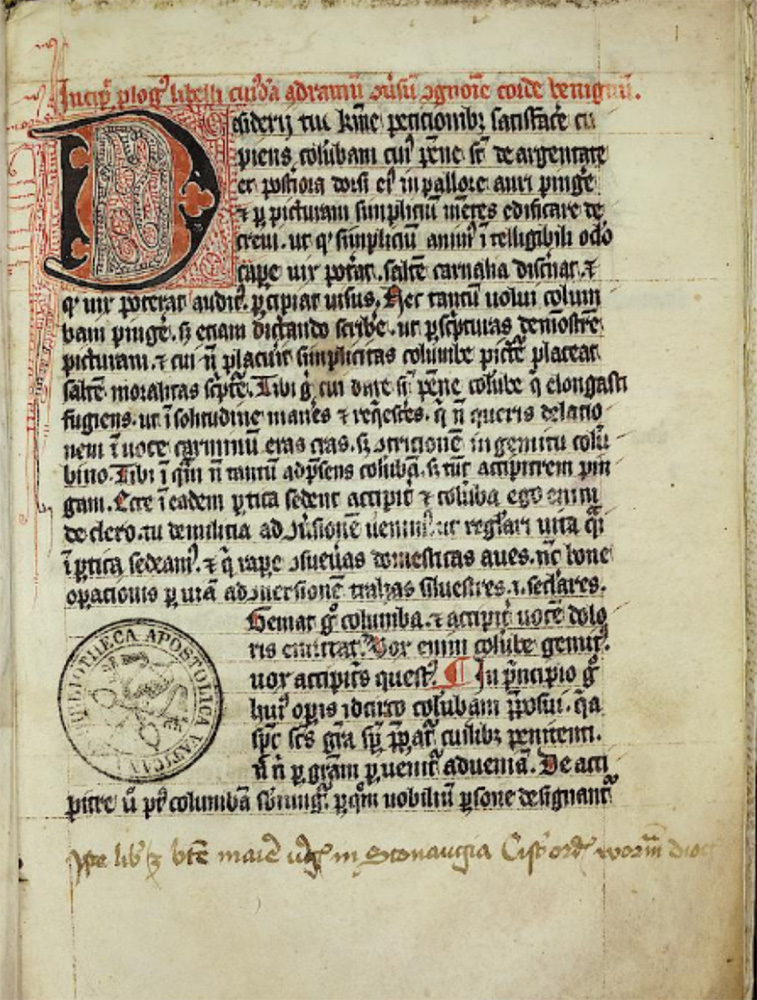 Incip̄ ꝓlogꝰ libelli cuı᷒da ad ramū ↄuˢ̄ū ↄgnoīe corde benignū.
Desiderij tui kīme petitionibꝫ satisfac̄e cu
piens, colūbam cui᷒ pēne sc̄t de argentate
et postiora dorsi ei᷒ in pallore auri pinḡe
⁊ ꝑ picturam simpliciū mētes edificare de
creui. ut qͦ simpliciū anim᷒ ītelligibili oc̄lo
cape uix pot̄at. saltē carnalia disc̄nat. ⁊
qͦ uix poterat audit᷒. ꝑcipiat uisus. Nec tantū uolui colum
bam pinḡe. sꝫ etiam dictando scribe̅. ut ꝑ sc̄pturas demōstrē
picturam. ⁊ cui n̄ placu̅it simplicitas columbe picte̅ placeat
saltē moralitas sc̄pte̅. Tibi g̊ cui date sc̄t pēne colūbe q̄ elongasti
fugiens. ut ī solitudine manēs ⁊ req̄escēs. q̄ n̄ queris delatio
nem ī uoce caruinū cras cras. sꝫ ↄtricionē in gemitu colū
bino. Tibi ī qm̄ n̄ tantū ad p̄sens colūbā. sꝫ et̄ accipitrem pin
gam. Ecce ī eadem ꝑtica sedent accipit̄ ⁊ colūba ego enim
de clero. tu de militia ad ↄu̅sionē uenim᷒. ut reglāri uita q̄i
ī ꝑtica sedeam᷒. ⁊ q̄ rape ↄsueu̅as domesticas aues. nc̄ bone
opationis ꝑ uiā ad ↄuersionē trahas siluestres .i. sclāres.
Gemat g̊ columba. ⁊ accipit̄ uocē dolo
ris emittat. Vox enim colūbe gemit᷒.
uox accipitˢ quest᷒. ¶ In p̄ncipio g̊
hui᷒ op̄is idcirco colūbam p̄posui. q̄a
sp̄c sc̄s gr̄a sp̄ p̄pat̄ cuilibꝫ penitenti.
n̄ n̄ ꝑ gr̄am ꝑuenit̄ ad ueniā. De acci
pitre u̅ pt̄ columbā sb̄iungit̄. ꝑ qͤm nobiliū ꝑsone designant̄
Iste lib̄ ꝫ btē marie v̄gīs in Sconaugia Cist̄ ord̄ worm̄ dioc̄
BIBLIOTHECA APOSTOLICA VATICANA